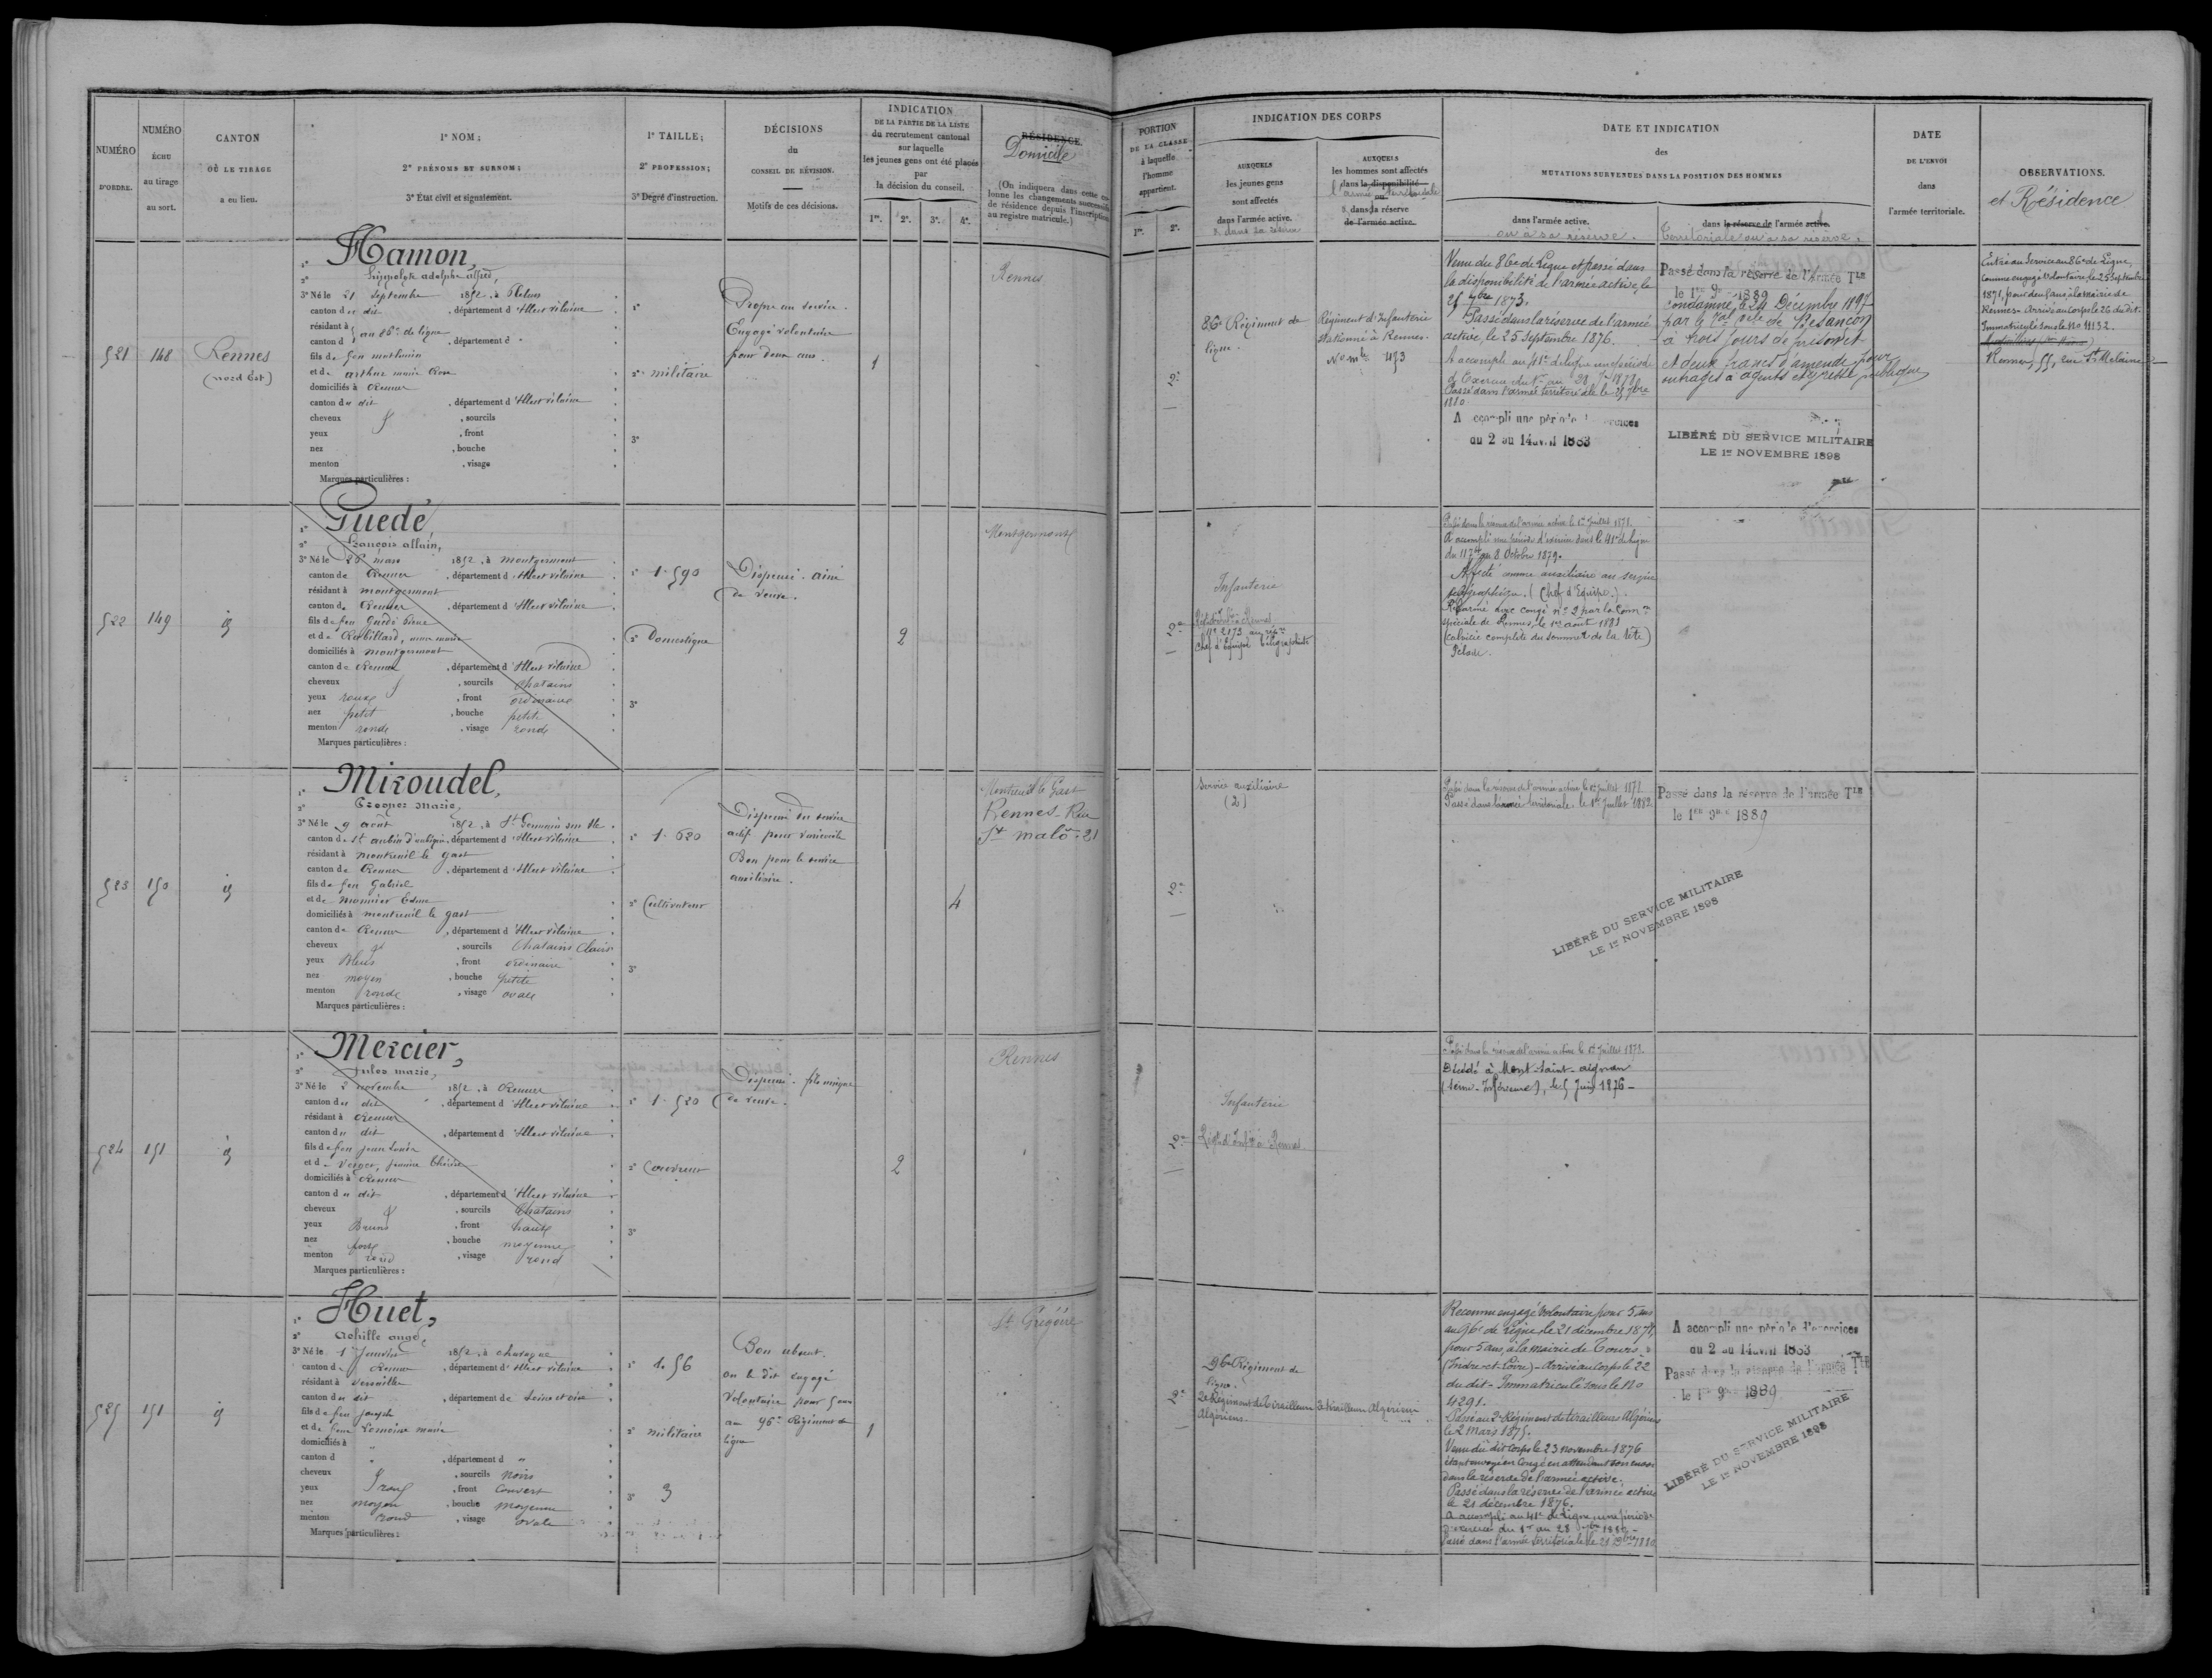 NUMÉRO
D'ORDRE.
NUMÉRO
ÉCHU
au tirage
au sort.
CANTON
OÙ LE TIRAGE
a eu lieu.
1° NOM;
2° PRÉNOMS ET SURNOM;
3° État civil et signalement.
1° TAILLE;
2° PROFESSION;
3° Degré d'instruction.
DÉCISIONS
du
CONSEIL DE RÉVISION.
Motifs de ces décisions.
INDICATION
DE LA PARTIE DE LA LISTE
du recrutement cantonal
sur laquelle
les jeunes gens ont été placés
par
la décision du conseil.
1re. 2e. 3e. 4e.
RÉSIDENCE.
Domicile
(On indiquera dans cette colonne
les changements successifs
de résidence depuis l'inscription
au registre matricule.)
521
148
Rennes
(Nord Est)
1° Hamon,
2° hippolyte adolphe alfred,
3° Né le 21 septembre 1852, à
canton du dit, département d'Ille et vilaine
résidant à
canton d au 86e de ligne, département d "
fils de feu mathurin
et de
domiciliés à Rennes
canton du dit, département d'Ille et vilaine
cheveux , sourcils
yeux , front
nez , bouche
menton , visage
Marques particulières :
1°
2° militaire
3°
Propre au service.
Engagé volontaire
pour deux ans.
1
Rennes
522
149
id
1° Guedé,
2° François allain,
3° Né le 26 mars 1852, à montgermont
canton de Rennes, département d'Ille et vilaine
résidant à montgermont
canton de Rennes, département d'Ille et vilaine
fils de feu Guedé
et de Robillard,
domiciliés à montgermont
canton de Rennes, département d'Ille et vilaine
cheveux , sourcils chatains
yeux roux, front ordinaire
nez petit, bouche petite
menton ronde, visage ronde
Marques particulières :
1° 1.590
2° Domestique
3°
Dispensé. ainé
de veuve.
2
Montgermont
523
150
id
1° Miroudel,
2° Prosper Marie,
3° Né le 9 août 1852, à St Germain sur Ille
canton de St aubin d'aubigné, département d'Ille et vilaine
résidant à montreuil le gast
canton de Rennes, département d'Ille et vilaine
fils de feu Gabriel
et de monnier
domiciliés à montreuil le gast
canton de Rennes, département d'Ille et vilaine
cheveux , sourcils Chatains Clairs
yeux Bleus, front ordinaire
nez moyen, bouche petite
menton ronde, visage ovale
Marques particulières :
1° 1.620
2° Cultivateur
3°
Dispensé du service
actif pour varicocèle
Bon pour le service
auxiliaire.
4
Montreuil le Gast
Rennes-Rue
St malo-21
524
151
id
1° Mercier,
2° Jules marie,
3° Né le 2 novembre 1852, à Rennes
canton du dit, département d'Ille et vilaine
résidant à Rennes
canton du dit, département d'Ille et vilaine
fils de feu jean louis
et d
domiciliés à Rennes
canton du dit, département d'Ille et vilaine
cheveux , sourcils Chatains
yeux Bruns, front haut
nez fort, bouche moyenne
menton rond, visage rond
Marques particulières :
1° 1.520
2° Couvreur
3°
Dispensé. fils unique
de veuve.
2
Rennes
525
151
id
1° Huet,
2° Achille ange,
3° Né le 1er Janvier 1852, à
canton de Rennes, département d'Ille et vilaine
résidant à Versailles
canton du dit, département de Seine et oise
fils de feu joseph
et de feue Lemoine marie
domiciliés à "
canton d ", département d "
cheveux , sourcils Noirs
yeux , front couvert
nez moyen, bouche moyenne
menton rond, visage ovale
Marques particulières :
1° 1.56
2° militaire
3° 3
Bon absent.
on le dit engagé
volontaire pour 5 ans
au 96e Régiment de
ligne
1
St Grégoire
PORTION
DE LA CLASSE
à laquelle
l'homme
appartient.
1re. 2e.
INDICATION DES CORPS
AUXQUELS
les jeunes gens
sont affectés
dans l'armée active.
AUXQUELS
les hommes sont affectés
dans la disponibilité
l'armée territoriale
ou
dans la réserve
de l'armée active.
DATE ET INDICATION
des
MUTATIONS SURVENUES DANS LA POSITION DES HOMMES
dans l'armée active.
ou à sa réserve.
dans la réserve de l'armée active.
Territoriale ou à sa réserve.
DATE
DE L'ENVOI
dans
l'armée territoriale.
OBSERVATIONS.
et Résidence
2e
86e Régiment de
ligne.
Régiment d'Infanterie
stationné à Rennes.
No mle 453
Venu du 86e de Ligne et passé dans
la disponibilité de l'armée active, le
25 7bre 1873.
Passé dans la réserve de l'armée
active, le 25 septembre 1876.
A accompli au 41e de ligne une période
Passé dans l'armée territoriale le 25 7bre
1880
A accompli une période d'exercices
du 2 au 14 avril 1883
Passé dans la réserve de l'Armée Tle
le 1er 9bre 1889
Condamné, le 24 Décembre 1897
par le de Besançon
à trois jours de prison et
et deux francs d'amende pour
outrages à agents et ivresse publique
LIBÉRÉ DU SERVICE MILITAIRE
LE 1er NOVEMBRE 1898
Entré au Service au 86e de Ligne,
comme engagé Volontaire, le 25 septembre
1871, pour deux ans à la mairie de
Rennes. Arrivé au Corps le 26 du dit.
Immatriculé sous le No 4132.
Rennes, 55, rue St Melaine
2e
Infanterie
No 2173 au rép.re
Chef d'équipe télégraphiste
Passé dans la réserve de l'armée active le 1er Juillet 1878.
A accompli une période d'exercice dans le 41e de ligne
du 11 7bre au 8 Octobre 1879.
Affecté comme auxiliaire au service
télégraphique. (Chef d'Equipe.).
Réformé avec congé no 2 par la Comm.on
spéciale de Rennes, le 1er août 1883
(calvitie complète du sommet de la tête)
Pelade.
2e
Service auxiliaire
(2)
Passé dans la réserve de l'armée active le 1er Juillet 1878.
Passé dans l'armée territoriale le 1er Juillet 1882.
Passé dans la réserve de l'armée Tle
le 1er 9bre 1889
LIBÉRÉ DU SERVICE MILITAIRE
LE 1er NOVEMBRE 1898
2e
Infanterie
Régt d'Infie à Rennes.
Passé dans la réserve de l'armée active le 1er Juillet 1878.
Décédé à Mont-Saint-aignan
(Seine-Inférieure), le 5 Juin 1876-
2e
96e Régiment de
ligne.
2e Régiment de Tirailleurs
Algériens.
2e tirailleurs Algériens
Reconnu engagé Volontaire pour 5 ans
au 96e de Ligne, le 21 décembre 1871,
pour 5 ans, à la mairie de Tours,
(Indre-et-Loire)-Arrivé au Corps le 22
du dit-Immatriculé sous le No
4291.
Passé au 2e Régiment de tirailleurs Algériens
le 2 mars 1875.
Venu du dit Corps le 23 novembre 1876
étant envoyé en Congé en attendant son envoi
dans la réserve de l'armée active.
Passé dans la réserve de l'armée active
le 21 décembre 1876.
A accompli au 41e de Ligne une période
d'exercices du 1er au 28
Passé dans l'armée territoriale le 21 Xbre 1880
A accompli une période d'exercices
du 2 au 14 avril 1883
Passé dans la réserve de l'armée Tle
le 1er 9bre 1889
LIBÉRÉ DU SERVICE MILITAIRE
LE 1er NOVEMBRE 1898